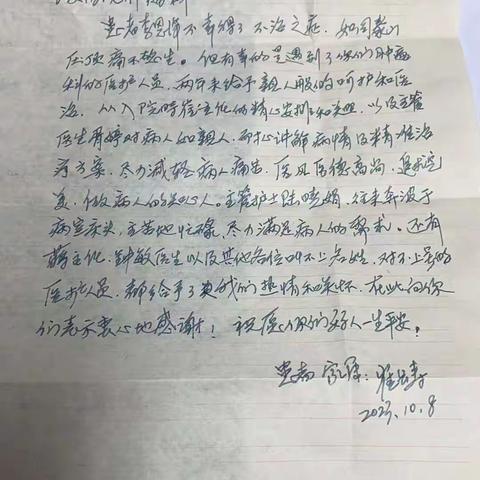 患者李恩伟不幸得了不治之症，如同泰山
压顶痛不欲生。但有幸的是遇到了你们肿瘤
科的医护人员，两年来给予亲人般的呵护和医
治，从入院时崔注化的精心安排和关照，以及主管
医生胥婷对病人如亲人，耐心讲解病情及精准治
疗方案，尽力减轻病人痛苦，医风医德高尚，追求完
美，做病人的知心人。主管护士陆晓娟，往来奔波于
病室床头，辛苦地忙碌，尽力满足病人的需求。还有
蒋主化、钟敏医生以及其他各位叫不上名姓，对不上号的
医护人员，都给予了患我们热情和关怀，在此向你
们表示衷心地感谢！祝医心你们好人一生平安。
患者家属：
2023.10.8